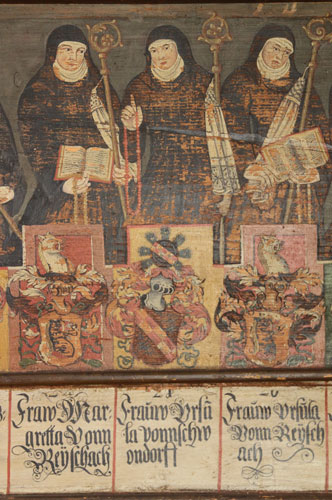 Fraw Mar
gretta Vonn
Reyschach
Frauw Vrsu
la vonnschw
ondorff
Frauw Vrsula
Vonn Reysch
ach